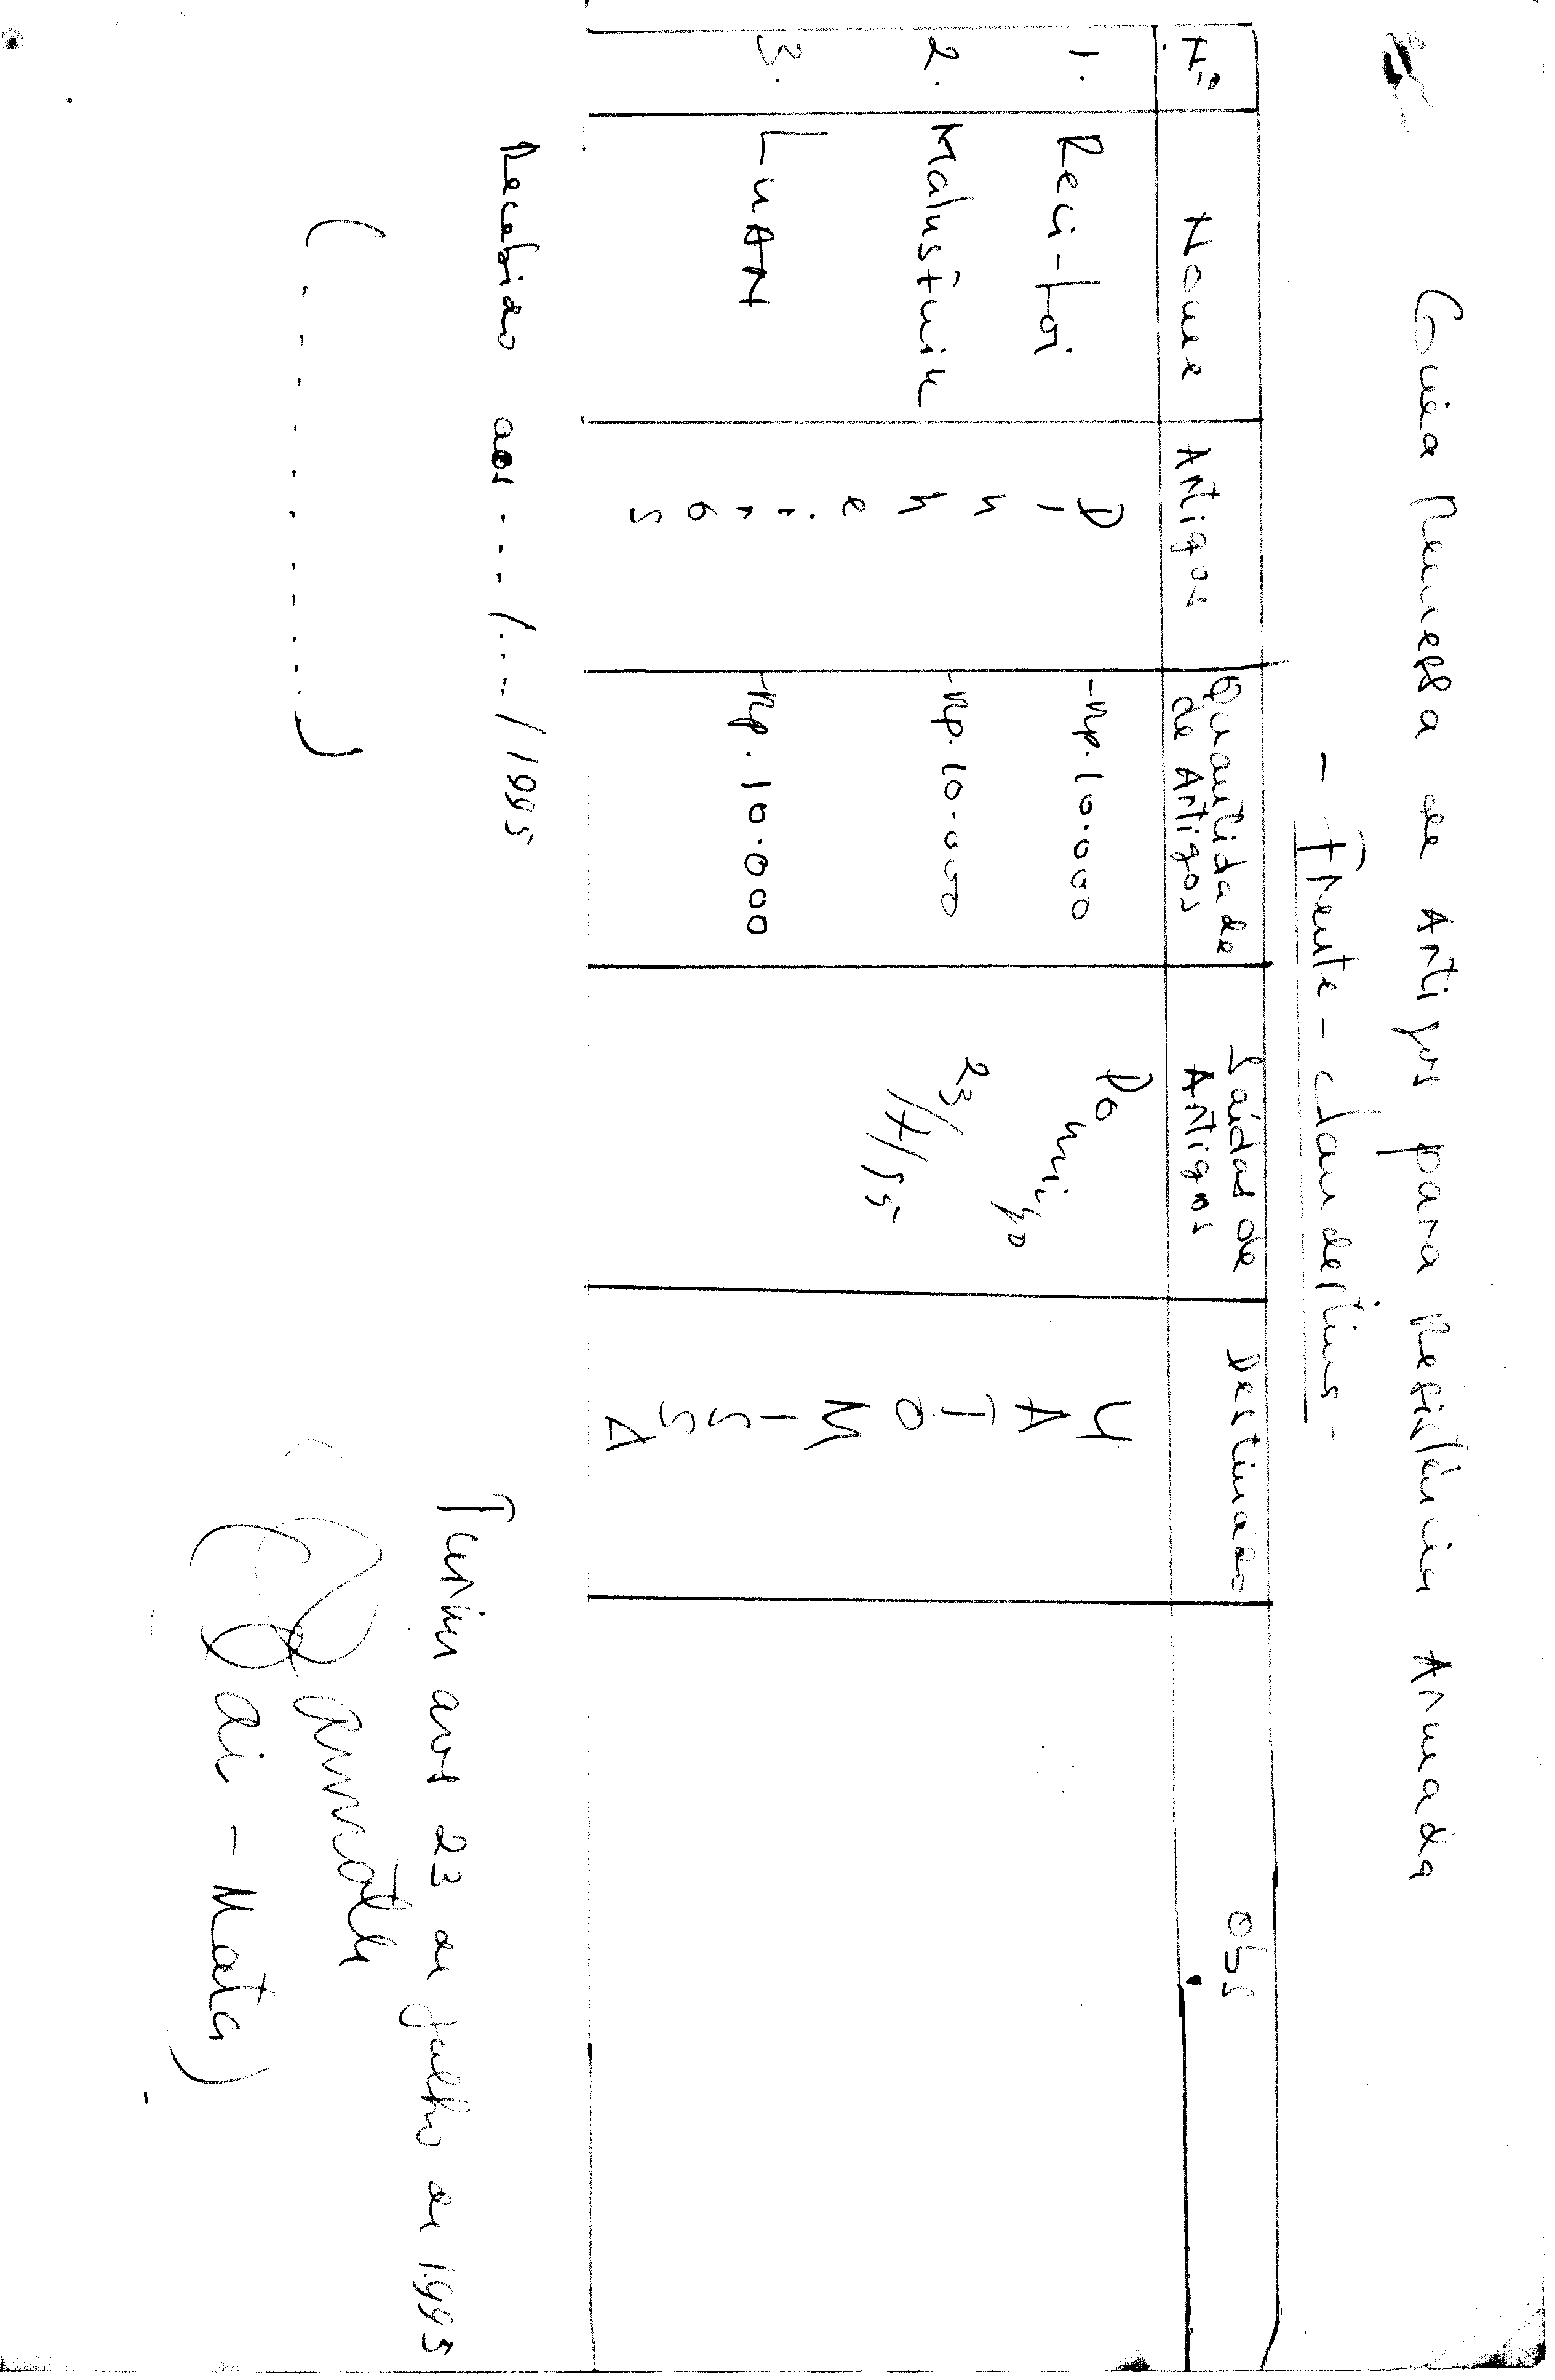 Guia Remessa de Artigos para Resistência Armada
- Frente-clandestina -
Nº Nome Artigos Quantidade de Artigos Saídas de Artigos Destinado Obs
1. Reci-Loi Dinheiros -Rp.10.000 Domingo 23/7/95 UATO MISSA
2. -Rp.10.000
3. LUAN -Rp.10.000
Recebido aos..../..../1995
(..............)
aos 23 de julho de 1995
(Bai-Mata)